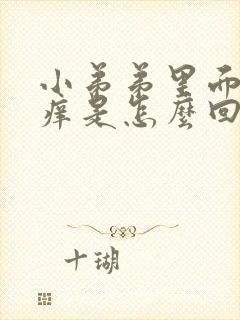 小弟弟里而
痒是怎麼回
十瑚